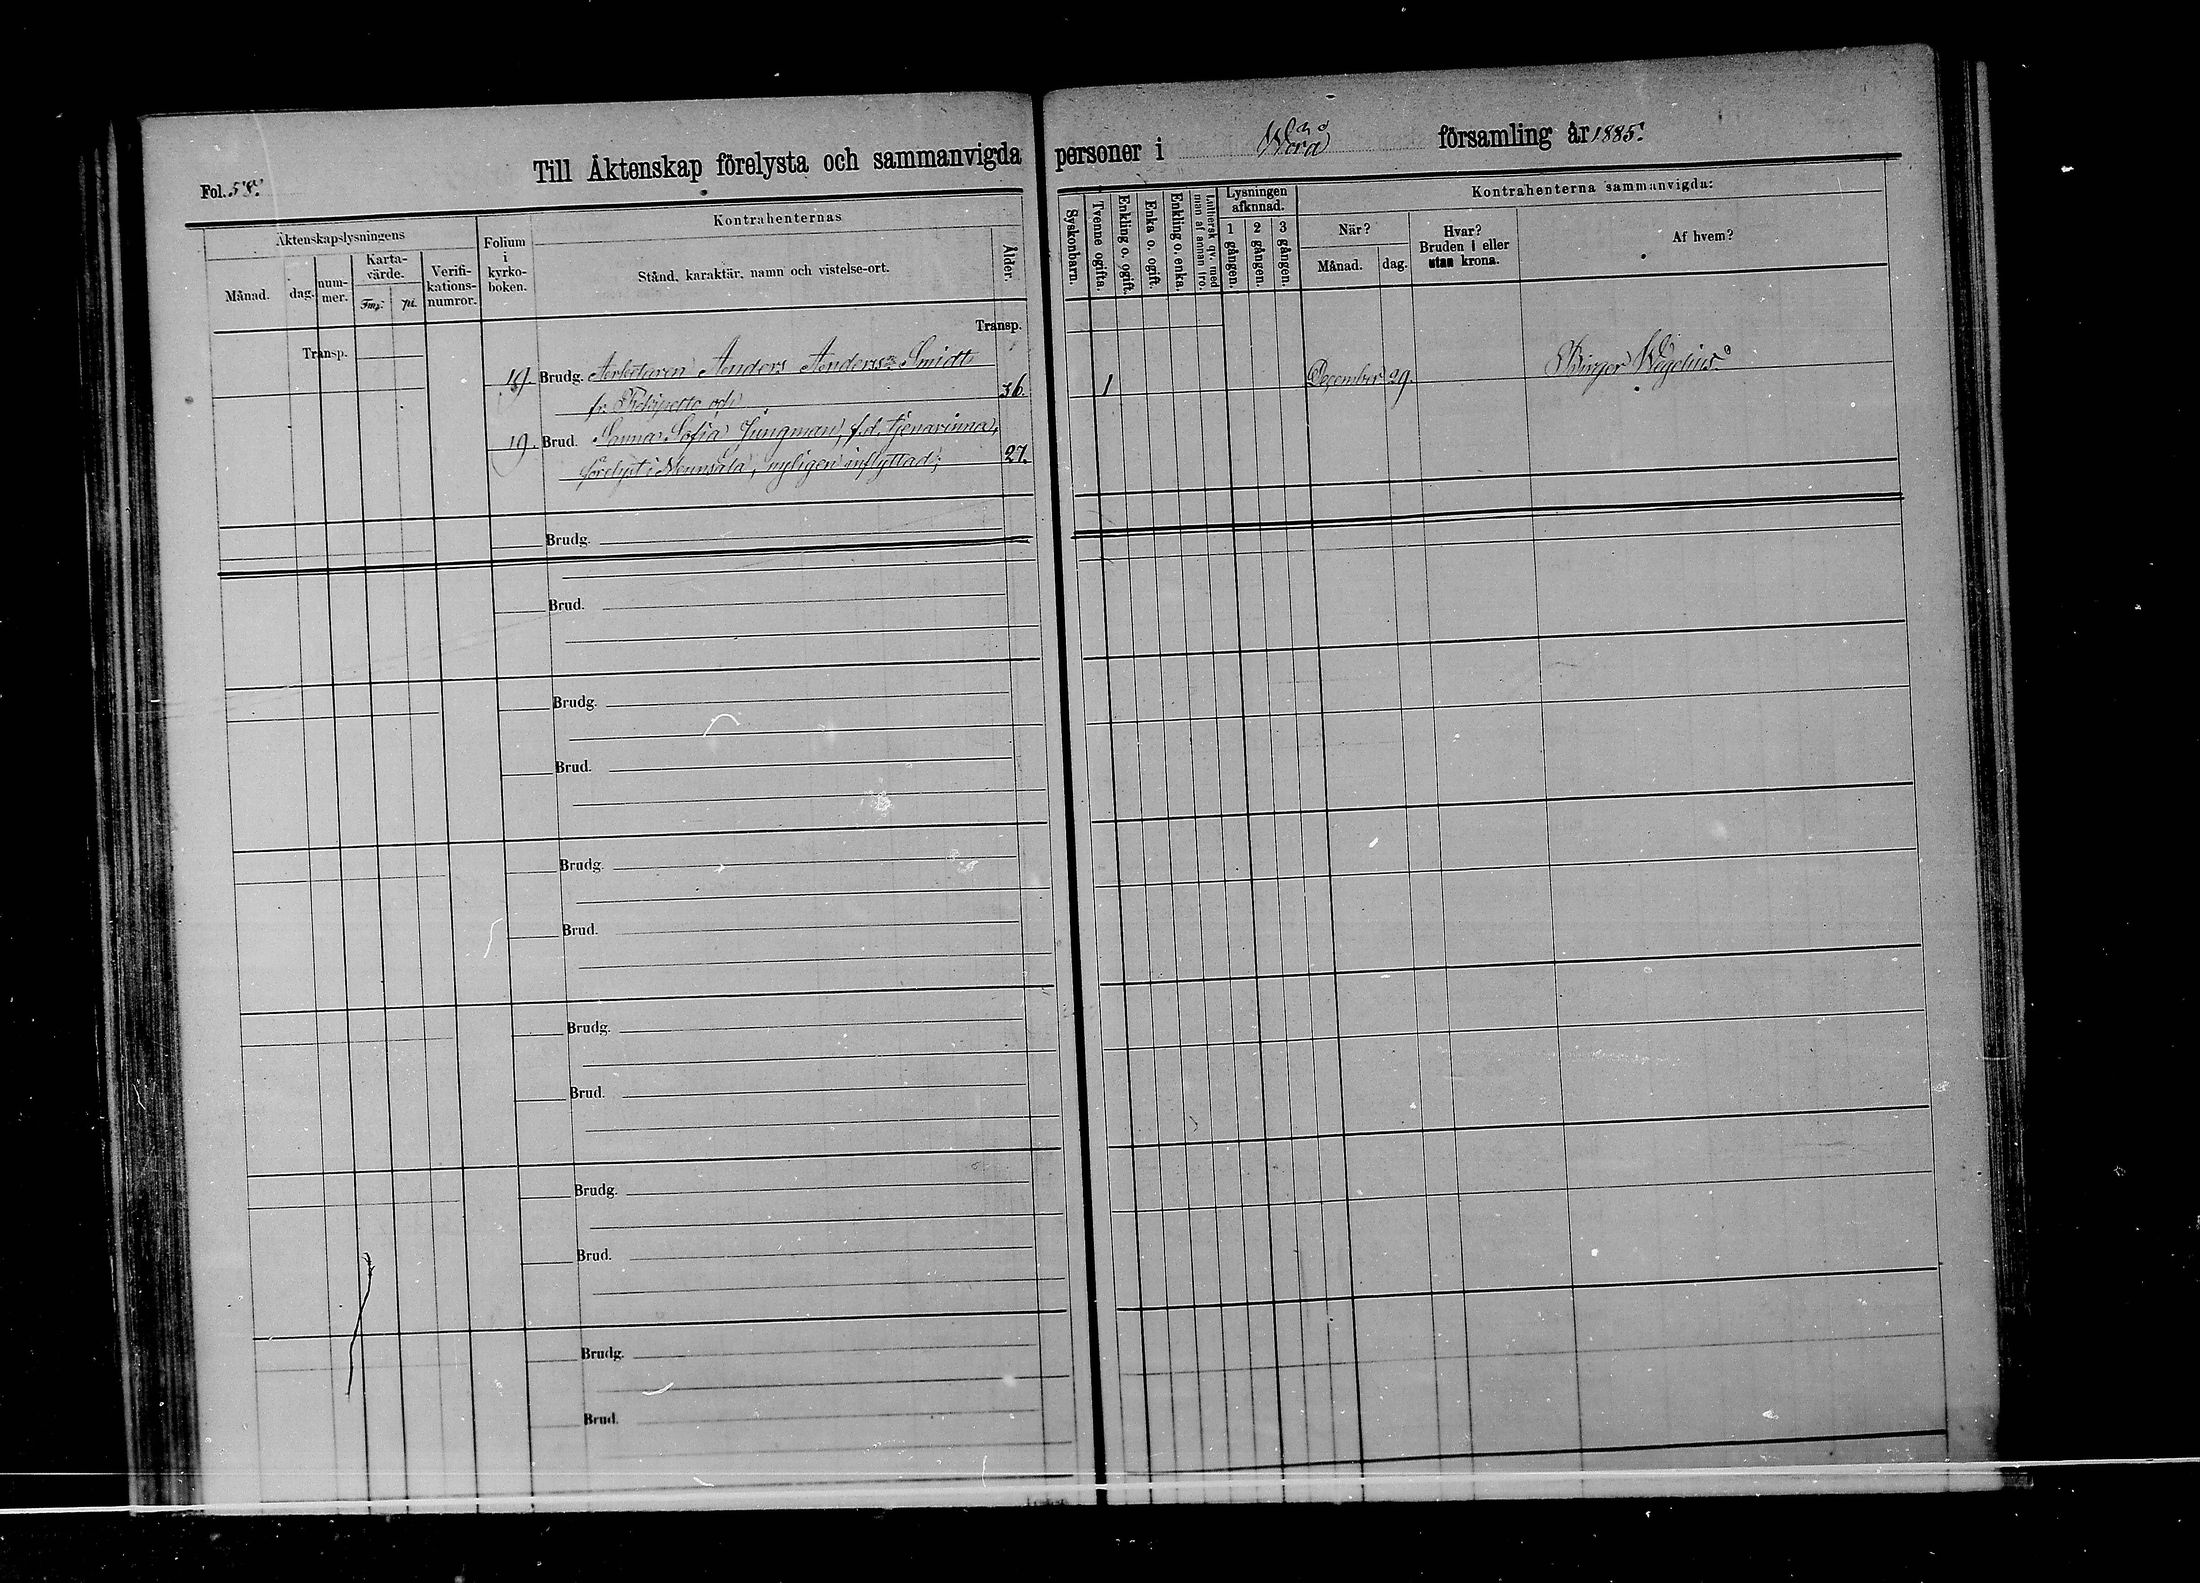 Fol. 58.
Till Äktenskap förelysta och sammanvigda personer i Wörå församling år 1885.
Äktenskapslysningens
Månad.
dag.
num-
mer.
Karta-
värde.
Fmg:
pi.
Verifi-
kations-
numror.
Folium
i
kyrko-
boken.
Kontrahenternas
Stånd, karaktär, namn och vistelse-ort.
Ålder.
Syskonbarn.
Tvenne ogifta.
Enkling o. ogift.
Enka o. ogift.
Enkling o. enka.
Luthersk qv. med
man af annan tro.
Lysningen
afkunnad.
1 gången.
2 gången.
3 gången.
Kontrahenterna sammanvigda:
När?
Månad.
dag.
Hvar?
Bruden i eller
utan krona.
Af hvem?
Transp.
Transp.
19. Brudg. Arbetaren Anders Anderss:n Smidt
fr. och 36. 1 December 29. Birger Wegelius
19. Brud. Sanna Sofia Jungman, f.d. tjenarinna,
förelyst i Munsala, nyligen inflyttad; 27.
Brudg.
Brud.
Brudg.
Brud.
Brudg.
Brud.
Brudg.
Brud.
Brudg.
Brud.
Brudg.
Brud.